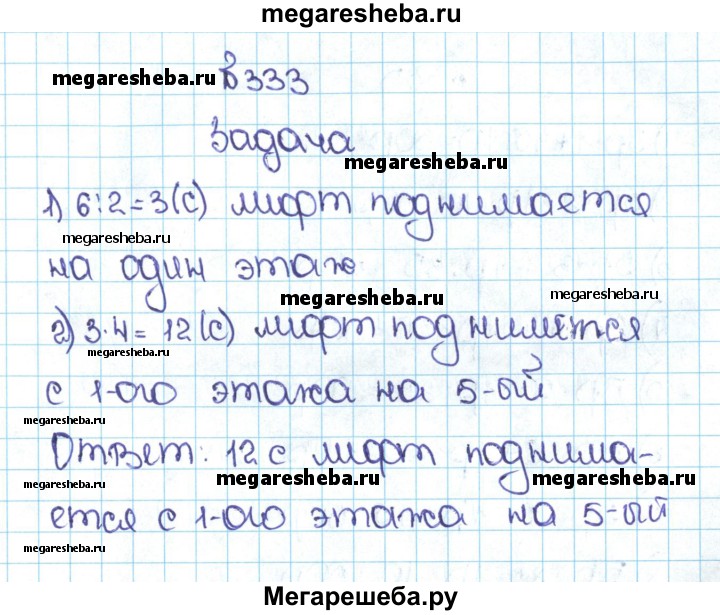 megaresheba.ru
megaresheba.ru № 333
Задача
megaresheba.ru
1) 6:2=3(с) лифт поднимается
megaresheba.ru
на один этаж
megaresheba.ru megaresheba.ru
2) 3·4= 12(с) лифт поднимется
megaresheba.ru
с 1-ого этажа на 5-ый
megaresheba.ru
Ответ: 12 с лифт поднима-
megaresheba.ru megaresheba.ru megaresheba.ru
ется с 1-ого этажа на 5-ый
megaresheba.ru
Мегарешеба.ру